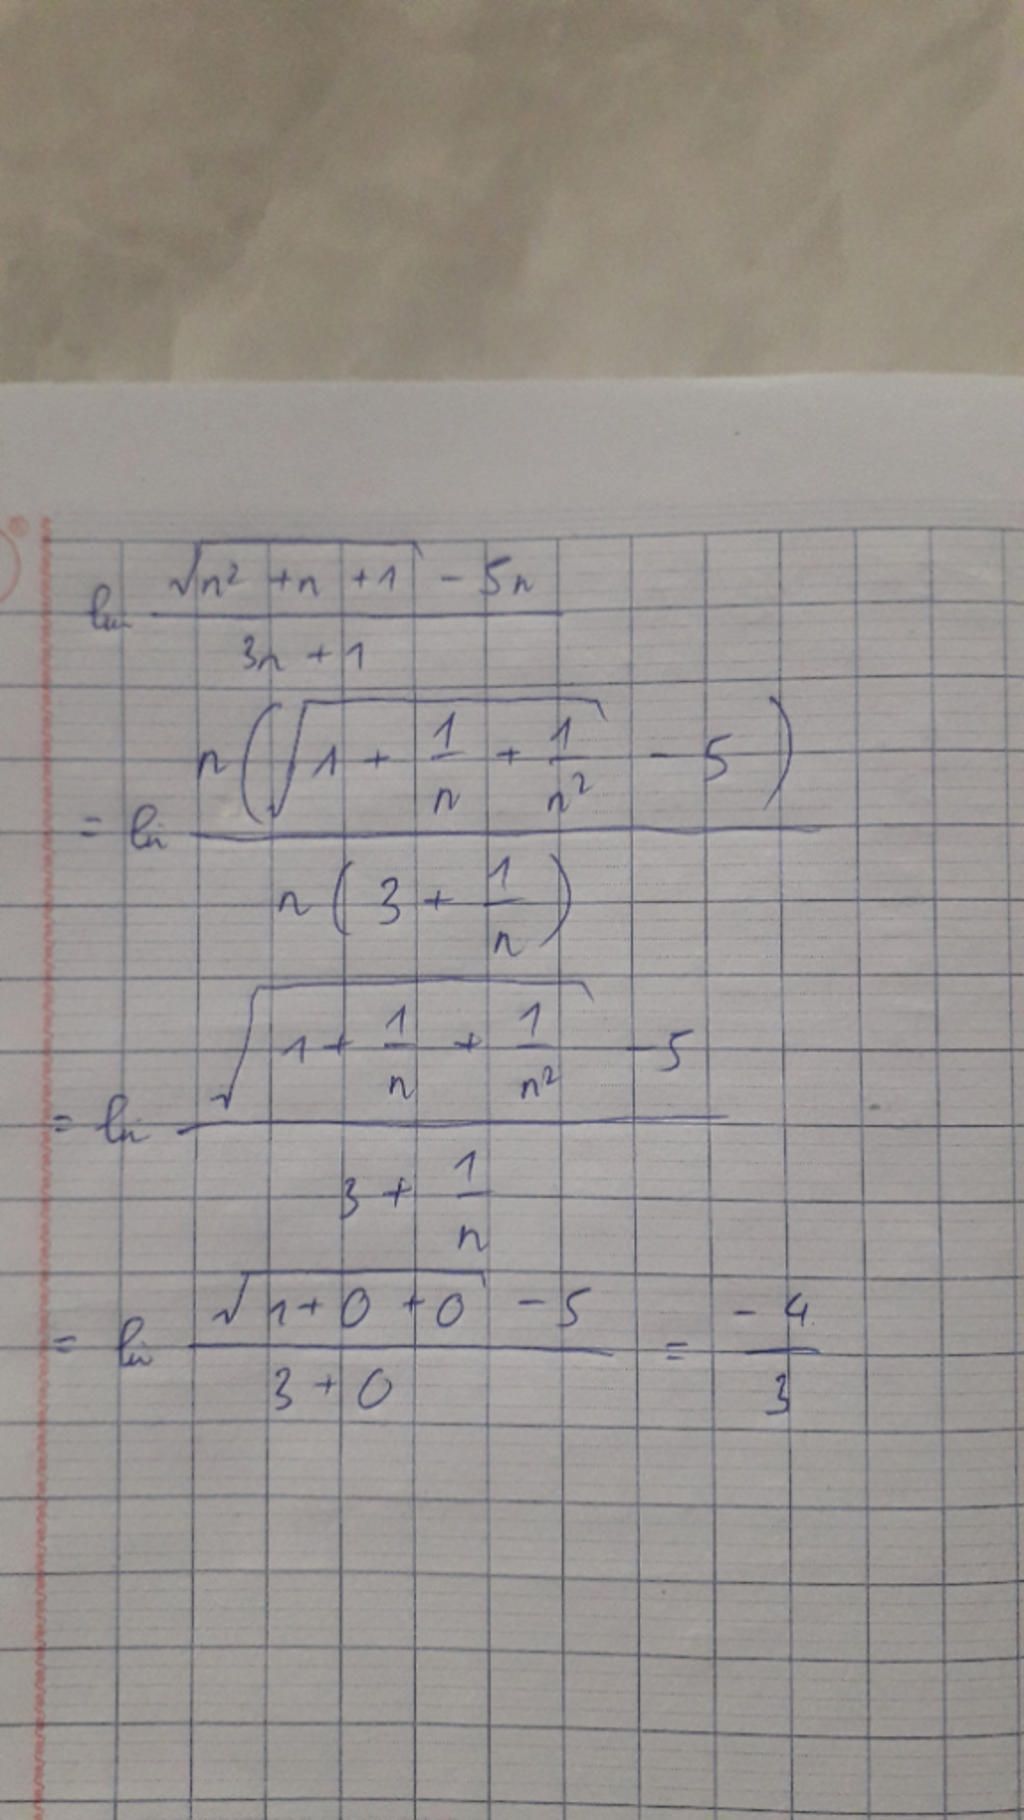 lim (√(n² + n + 1) - 5n) / (3n + 1)
= lim n(√(1 + 1/n + 1/n²) - 5) / n(3 + 1/n)
= lim (√(1 + 1/n + 1/n²) - 5) / (3 + 1/n)
= lim (√(1 + 0 + 0) - 5) / (3 + 0) = -4/3